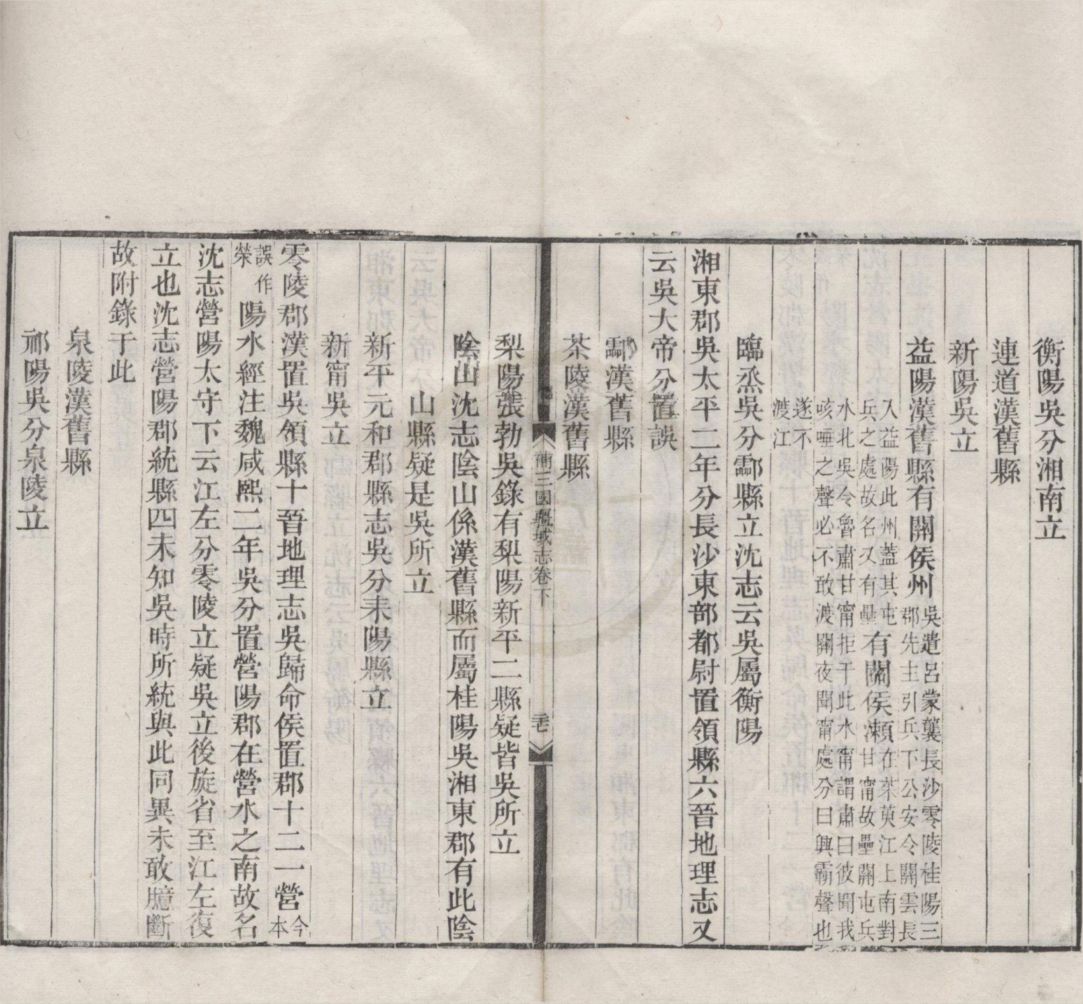 衡陽吳分湘南立
連道漢舊縣
新陽吳立
益陽漢舊縣有關侯州吳遣呂蒙襲長沙零陵桂陽三郡先主引兵下公安令關雲長
入益陽此州蓋其屯兵之處故名又有壘有關侯瀨在茱萸江上南對甘甯故壘關屯兵
水北吳令魯肅甘甯拒于此水甯謂肅曰彼聞我咳唾之聲必不敢渡關夜聞甯處分曰興霸聲也
遂不渡江
臨烝吳分酃縣立沈志云吳屬衡陽
湘東郡吳太平二年分長沙東部都尉置領縣六晉地理志又
云吳大帝分置誤
酃漢舊縣
茶陵漢舊縣
補三國疆域志卷下
梨陽張勃吳錄有梨陽新平二縣疑皆吳所立
陰山沈志陰山係漢舊縣而屬桂陽吳湘東郡有此陰
山縣疑是吳所立
新平元和郡縣志吳分耒陽縣立
新甯吳立
零陵郡漢置吳領縣十晉地理志吳歸命侯置郡十二一營今本
誤作滎陽水經注魏咸熙二年吳分置營陽郡在營水之南故名
沈志營陽太守下云江左分零陵立疑吳立後旋省至江左復
立也沈志營陽郡統縣四未知吳時所統與此同異未敢臆斷
故附錄于此
泉陵漢舊縣
祁陽吳分泉陵立